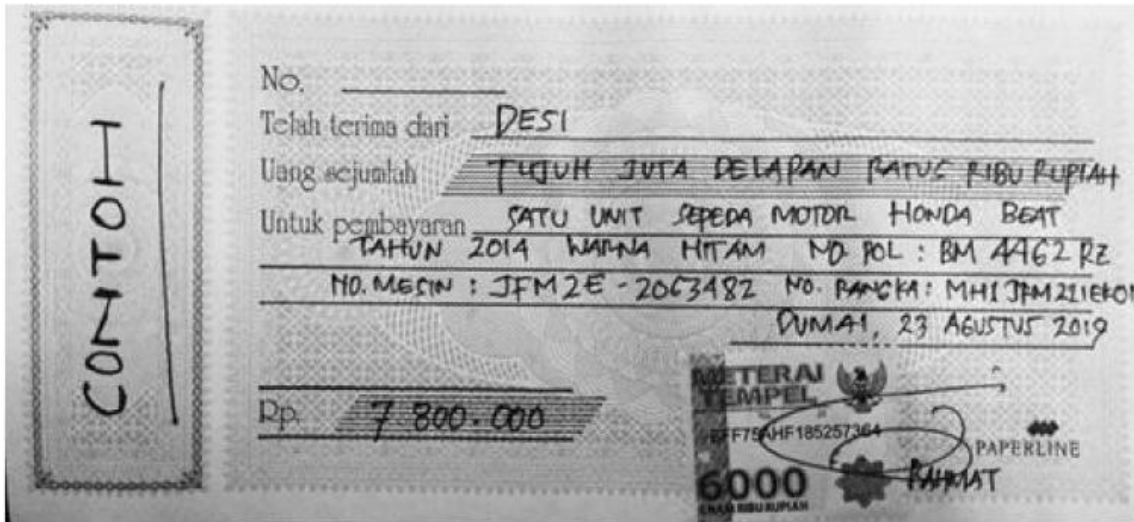 CONTOH
No.
Telah terima dari DESI
Uang sejumlah TUJUH JUTA DELAPAN RATUS RIBU RUPIAH
Untuk pembayaran SATU UNIT SEPEDA MOTOR HONDA BEAT
TAHUN 2014 WARNA HITAM NO. POL : BM 4462 RZ
NO. MESIN : JFM2E - 2063482 NO. RANGKA :
DUMAI, 23 AGUSTUS 2019
METERAI
TEMPEL
Rp. 7 800.000
PAPERLINE
6000
ENAM RIBU RUPIAH
RAHMAT